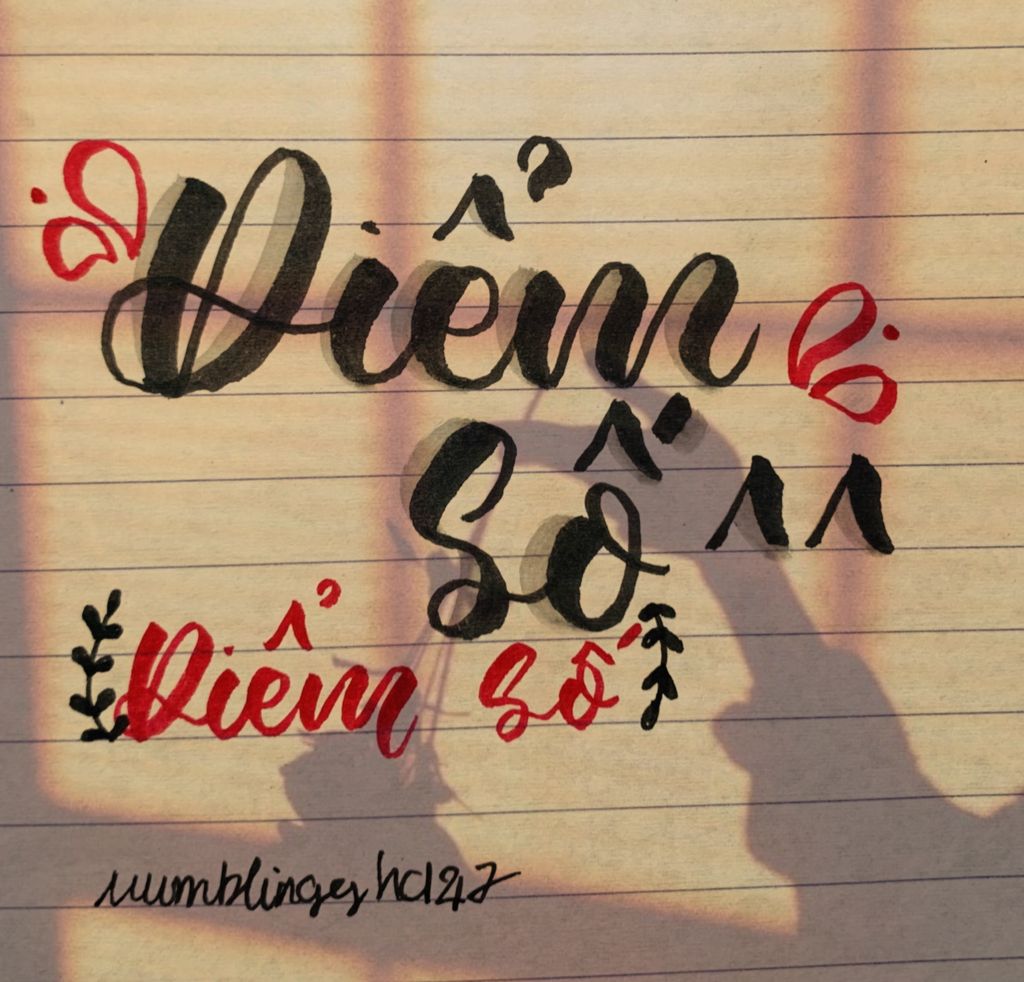 Điểm
Số
Điểm số